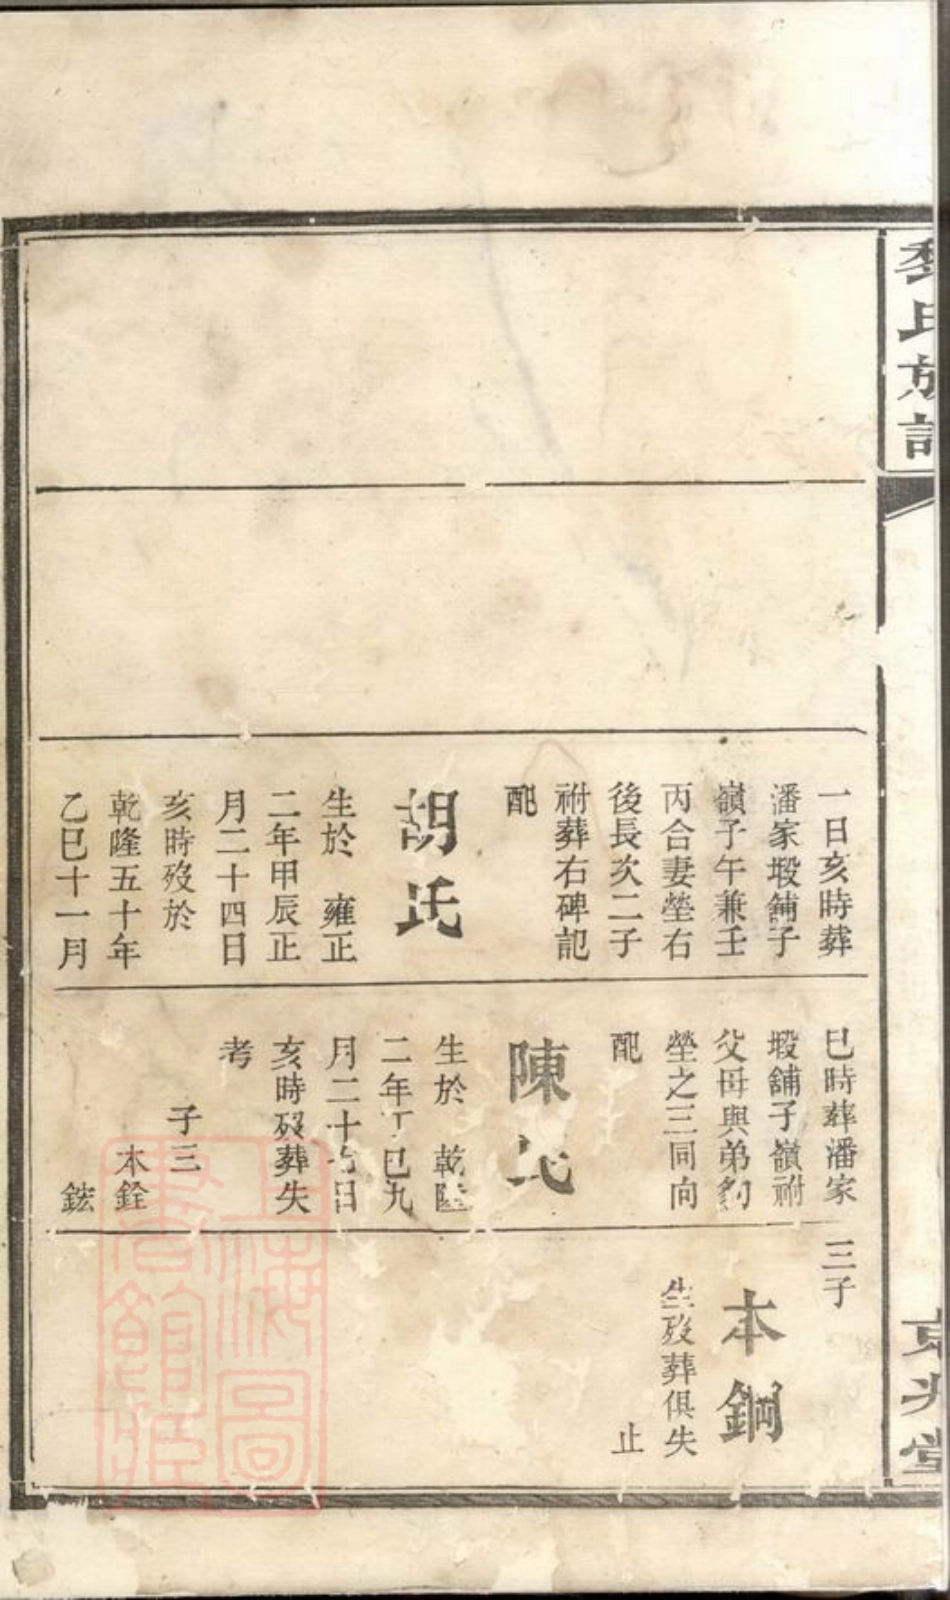 黎氏族譜
一日亥時葬
潘家塅舖子
嶺子午兼壬
丙合妻塋右
後長次二子
祔葬右碑記
配
胡氏
生於 雍正
二年甲辰正
月二十四日
亥時歿於
乾隆五十年
乙巳十一月
巳時葬潘家
塅舖子嶺祔
父母與弟
塋之三同向
配
陳氏
生於 乾隆
二年丁巳九
月二十七日
亥時歿葬失
考
子三
本銓
鋐
三子
本鋼
生歿葬俱失
止
京兆堂
上海圖書館藏